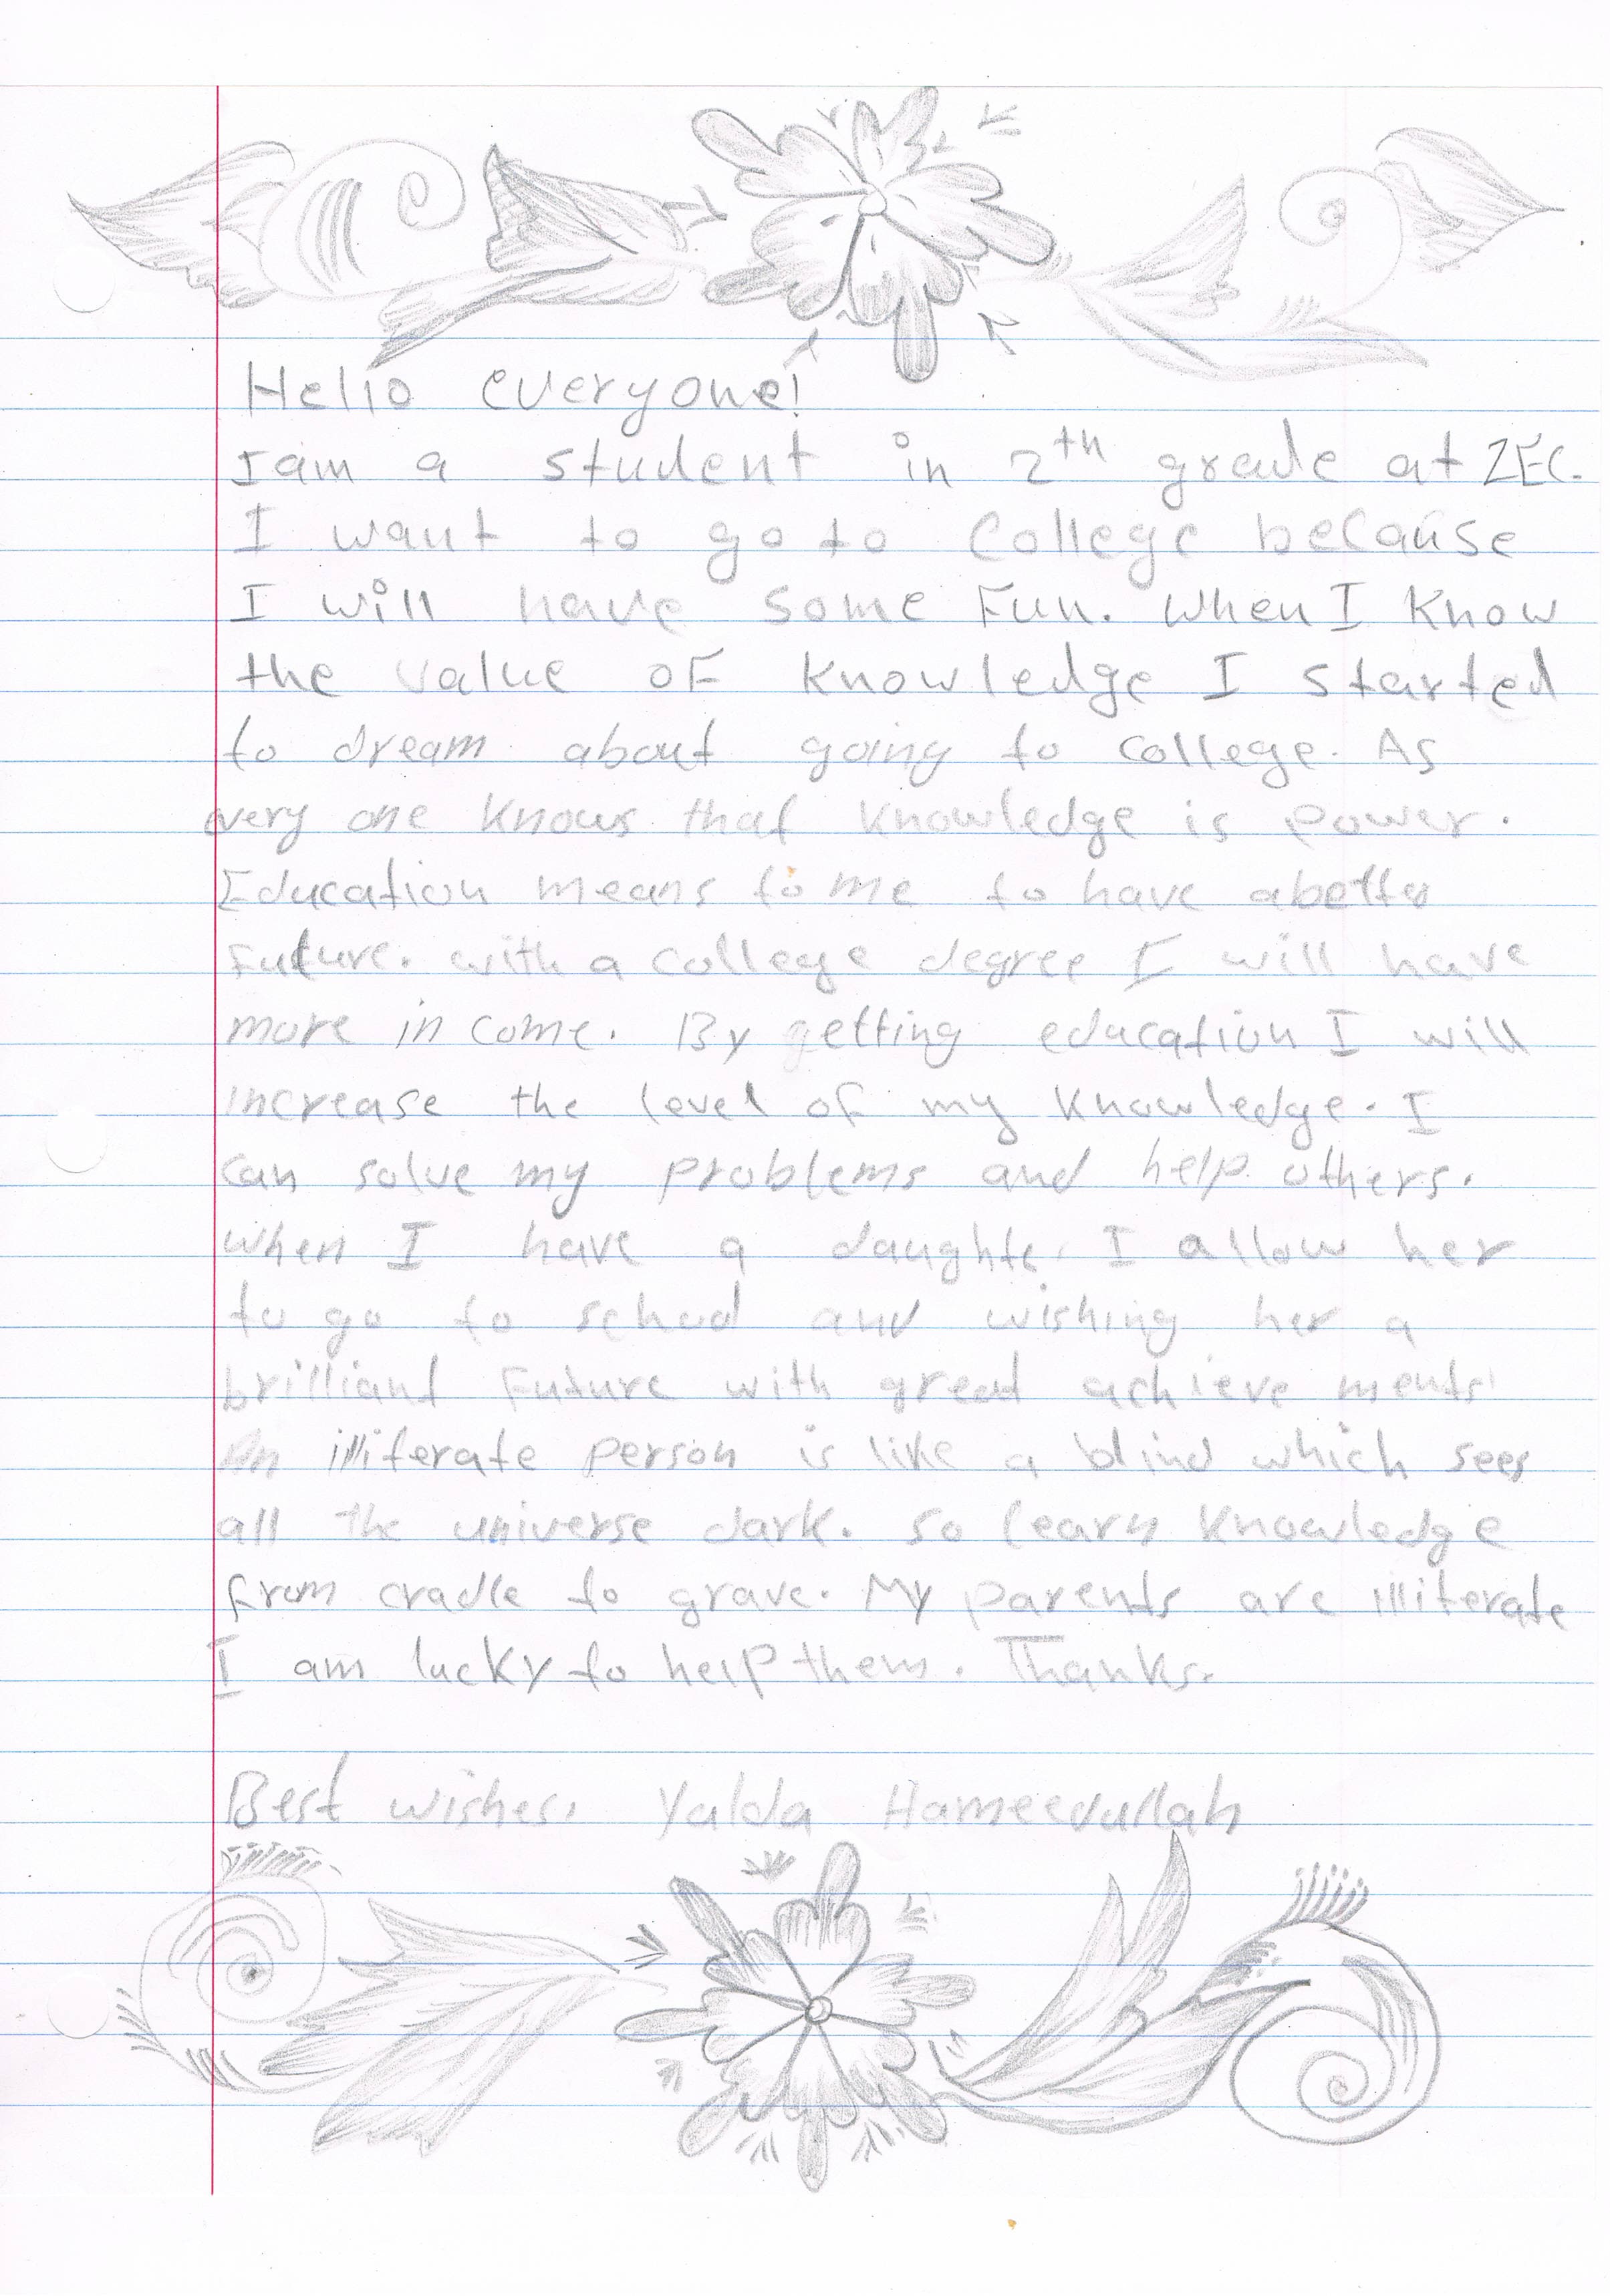 Hello everyone!
I am a student in 2th grade at ZEC.
I want to go to College because
I will have some Fun. When I Know
the value of Knowledge I started
to dream about going to college. As
every one Knows that Knowledge is power.
Education means to me to have a better
Future. with a college degree I will have
more in come. By getting education I will
increase the level of my Knowledge. I
can solve my problems and help others.
when I have a daughte, I allow her
to go to school and wishing her a
brilliant Future with great achieve ments
An illiterate person is like a blind which sees
all the universe dark. so learn Knowledge
from cradle to grave. My parents are illiterate
I am lucky to help them. Thanks.
Best wishes, Yalda Hameedullah